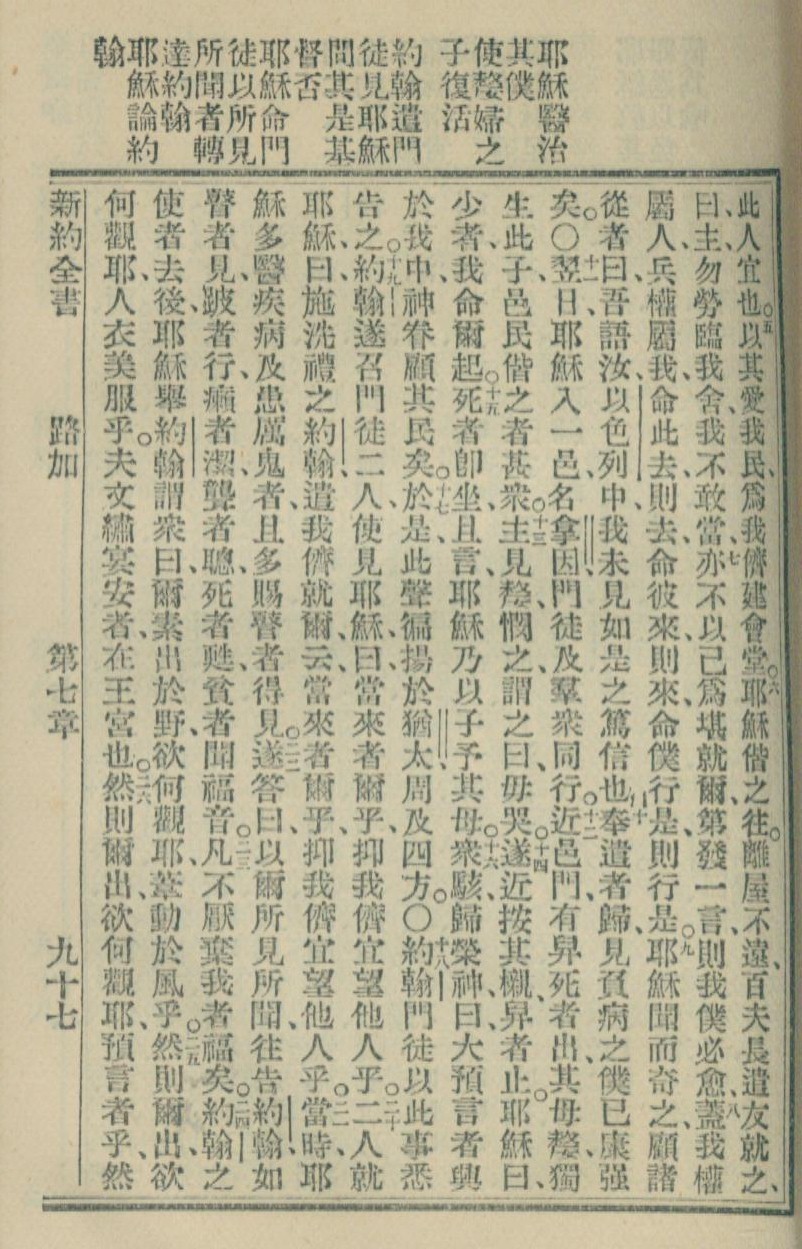 耶穌醫治
其僕
使嫠婦之
子復活
約翰遣門
徒見耶穌
問其是基
督否
耶穌命門
徒以所見
所聞者轉
達約翰
耶穌論約
翰
此人宜也。五以其愛我民、爲我儕建會堂。六耶穌偕之往。離屋不遠、百夫長遣友就之、
曰、主、勿勞臨我舍、我不敢當、七亦不以己爲堪就爾、第發一言、則我僕必愈、八蓋我權
屬人、兵權屬我、命此去、則去、命彼來、則來、命僕行是、則行是。九耶穌聞而奇之、顧諸
從者曰、吾語汝、以色列中、我未見如是之篤信也。十奉遣者歸、見負病之僕已康强
矣。〇十一翌日、耶穌入一邑、名拿因、門徒及羣衆同行。十二近邑門、有舁死者出、其母嫠、獨
生此子、邑民偕之者甚衆。十三主見嫠、憫之、謂之曰、毋哭。十四遂近按其櫬、舁者止。耶穌曰、
少者、我命爾起。十五死者卽坐、且言、耶穌乃以子予其母。十六衆駭、歸榮神、曰、大預言者興
於我中、神眷顧其民矣。十七於是此聲徧揚於猶太、周及四方。〇十八約翰門徒以此事悉
告之。十九約翰遂召門徒二人、使見耶穌、曰、當來者爾乎、抑我儕宜望他人乎。二十二人就
耶穌、曰、施洗禮之約翰、遣我儕就爾、云、當來者爾乎、抑我儕宜望他人乎。二一當時、耶
穌多醫疾病、及患厲鬼者、且多賜瞽者得見。二二遂答曰、以爾所見所聞、往告約翰、如
瞽者見、跛者行、癩者潔、聾者聰、死者甦、貧者聞福音。二三凡不厭棄我者福矣。二四約翰之
使者去後、耶穌舉約翰謂衆曰、爾素出於野、欲何觀耶、葦動於風乎。二五然則爾出、欲
何觀耶、人衣美服乎。夫文繡宴安者、在王宮也。二六然則爾出、欲何觀耶、預言者乎、然
新約全書 路加 第七章 九十七